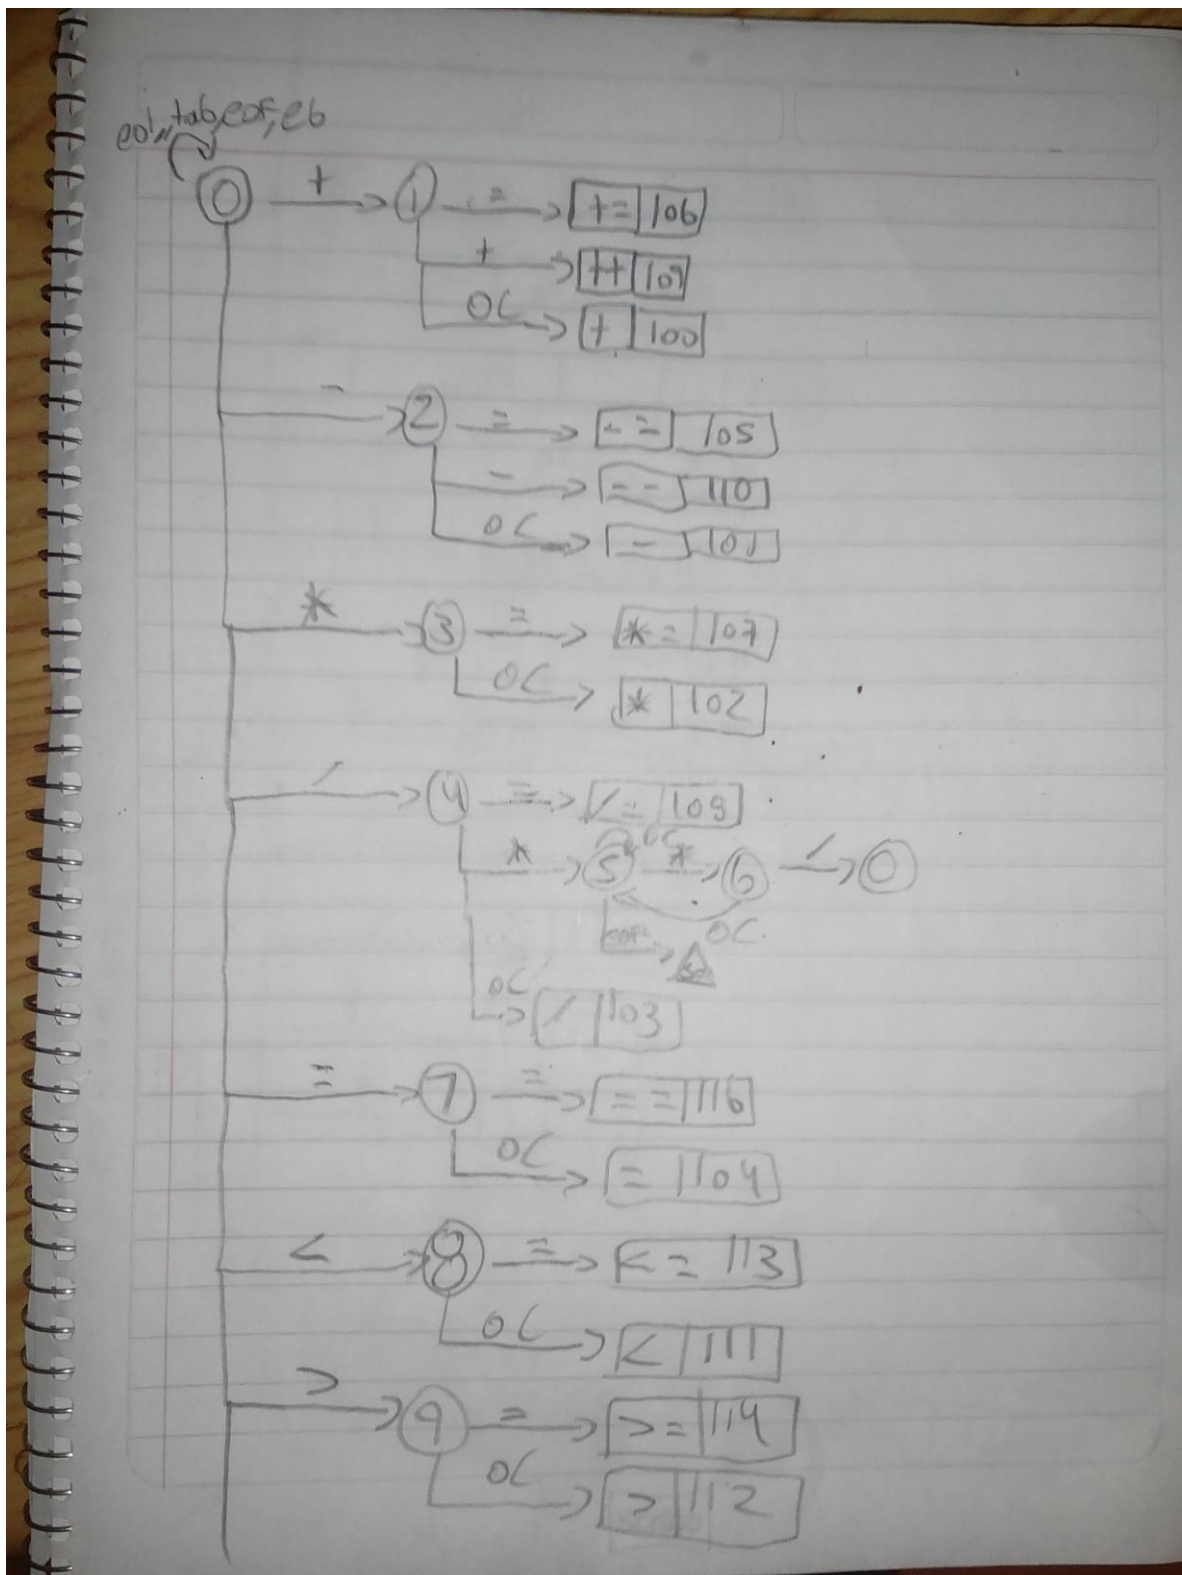 eol, tab, eof, eb
0 + 1 = += 106
+ ++ 109
OC + 100
- 2 = -= 105
- -- 110
OC - 101
* 3 = *= 107
OC * 102
/ 4 = /=
OC
* 5 * 6 / 0
eof OC
OC / 103
= 7 = == 116
OC = 104
< 8 = <= 113
OC < 111
> 9 = >= 114
OC > 112